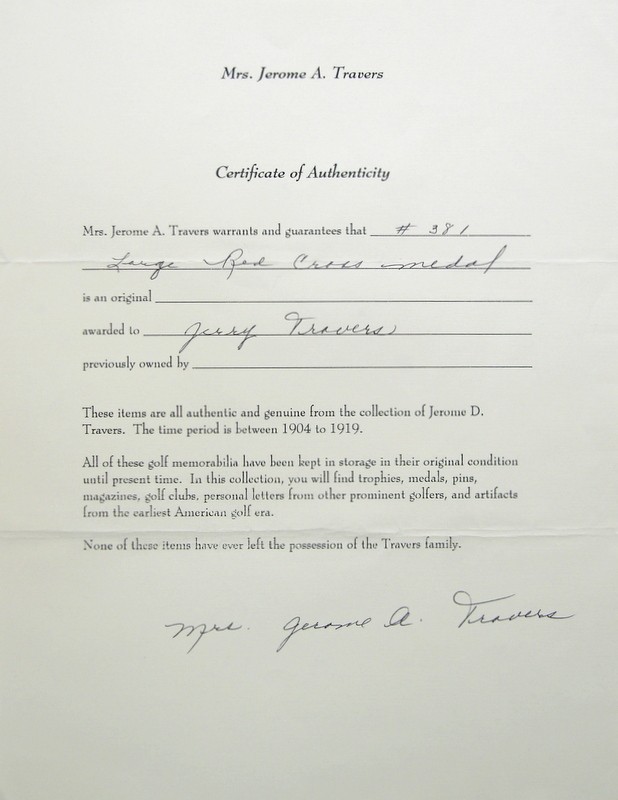 Mrs. Jerome A. Travers
Certificate of Authenticity
Mrs. Jerome A. Travers warrants and guarantees that # 381
Large Red Cross medal
is an original
awarded to Jerry Travers
previously owned by
These items are all authentic and genuine from the collection of Jerome D.
Travers. The time period is between 1904 to 1919.
All of these golf memorabilia have been kept in storage in their original condition
until present time. In this collection, you will find trophies, medals, pins,
magazines, golf clubs, personal letters from other prominent golfers, and artifacts
from the earliest American golf era.
None of these items have ever left the possession of the Travers family.
Mrs. Jerome A. Travers